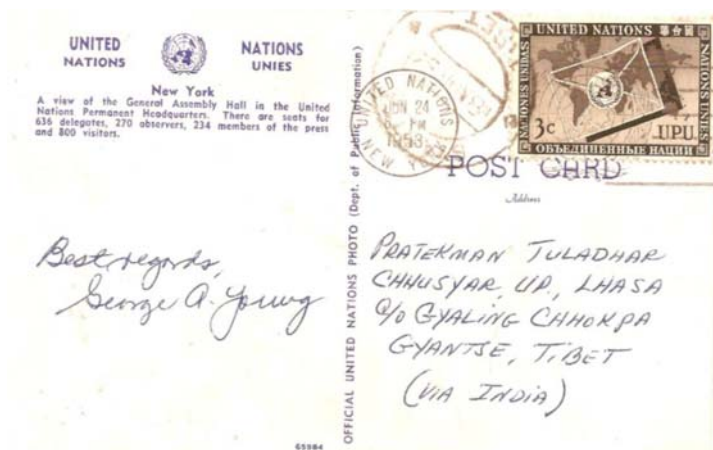 UNITED NATIONS
NATIONS UNIES
New York
A view of the General Assembly Hall in the United
Nations Permanent Headquarters. There are seats for
636 delegates, 270 observers, 234 members of the press
and 800 visitors.
Best regards,
George A. Young
65984
OFFICIAL UNITED NATIONS PHOTO (Dept. of Public Information)
UNITED NATIONS
JUN 24
PM
1953
NEW YORK
UNITED NATIONS
NACIONES UNIDAS
NATIONS UNIES
3c
UPU
ОБЪЕДИНЕННЫЕ НАЦИИ
POST CARD
Address
PRATEKMAN TULADHAR
CHHUSYAR, UP., LHASA
c/o GYALING CHHOKPA
GYANTSE, TIBET
(VIA INDIA)